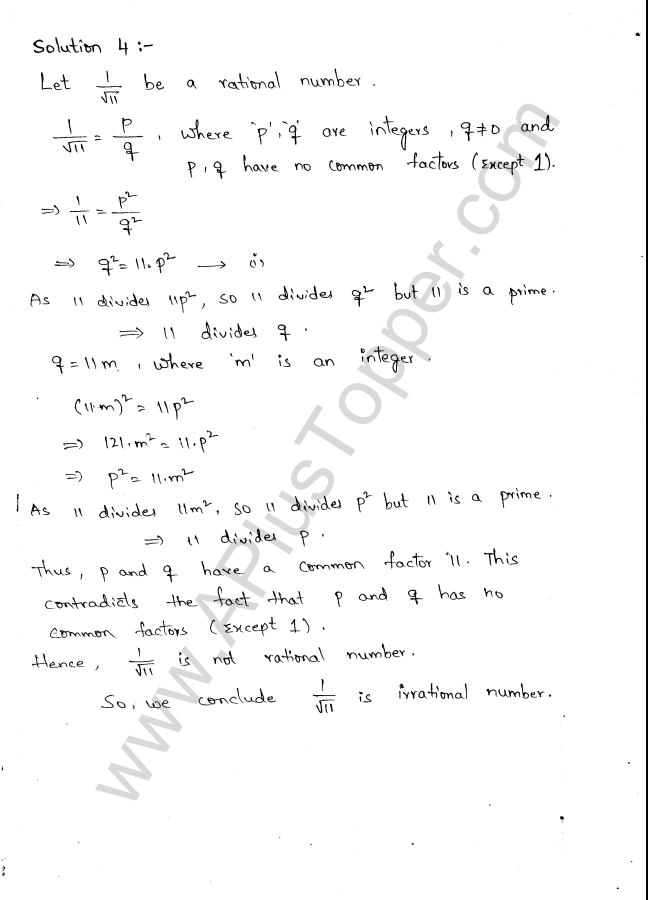 Solution 4 :-
Let 1/√11 be a rational number.
1/√11 = p/q , where 'p', 'q' are integers , q≠0 and
p, q have no common factors (Except 1).
⇒ 1/11 = p²/q²
⇒ q² = 11.p² → (i)
As 11 divides 11p², so 11 divides q² but 11 is a prime.
⇒ 11 divides q .
q = 11m , where 'm' is an integer .
(11.m)² = 11p²
⇒ 121.m² = 11.p²
⇒ p² = 11.m²
As 11 divides 11m², so 11 divides p² but 11 is a prime.
⇒ 11 divides p .
Thus, p and q have a common factor '11. This
contradicts the fact that p and q has no
common factors (Except 1) .
Hence, 1/√11 is not rational number.
So, we conclude 1/√11 is irrational number.
www.APlusTopper.com